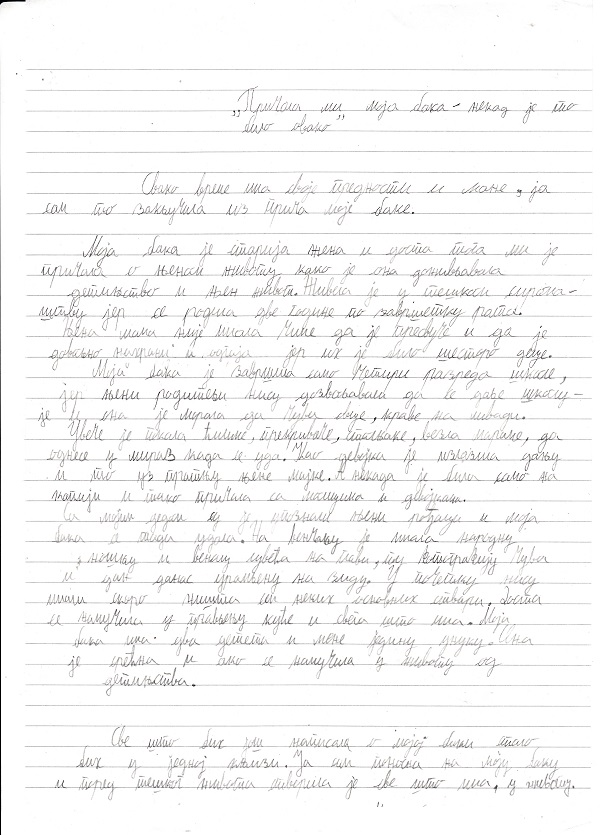 „Причала ми моја бака - некад је то
било овако„
Свако време има своје предности и мане, ја
сам то закључила из прича моје баке.
Моја бака је старија жена и доста тога ми је
причала о њеном животу, како је она доживљавала
детињство и њен живот. Живела је у тешком сирома-
штву јер се родила две године по завршетку рата.
Њена мама није имала чиме да је пресвуче и да је
довољно нахрани и одгаја јер их је било шесторо деце.
Моја бака је завршила само четири разреда школе,
јер њени родитељи нису дозвољавали да се даље школу-
је и она је морала да чува овце, краве на ливади.
Увече је ткала ћилиме, прекриваче, везла јараче, да
однесе у мираз када се уда. Као девојка је излазила дању
и то уз пратњу њене мајке. А некада је била само на
капији и тако причала са момцима и девојкама.
Са мојим дедом су је упознали њени рођаци и моја
бака се тада удала. На венчању је имала народну
ношњу и венац цвећа на глави, ту фотографију чува
и дан данас урамљену на зиду. У почетку нису
имали скоро ништа сем неких основних ствари. Доста
се намучила у прављењу куће и свега што има. Моја
бака има два детета и мене једину унуку. Она
је срећна и ако се намучила у животу од
детињства.
Све што бих још написала о мојој баки стало
би у једној књизи. Ја сам поносна на моју баку
и поред тешког живота створила је све што има, у животу.